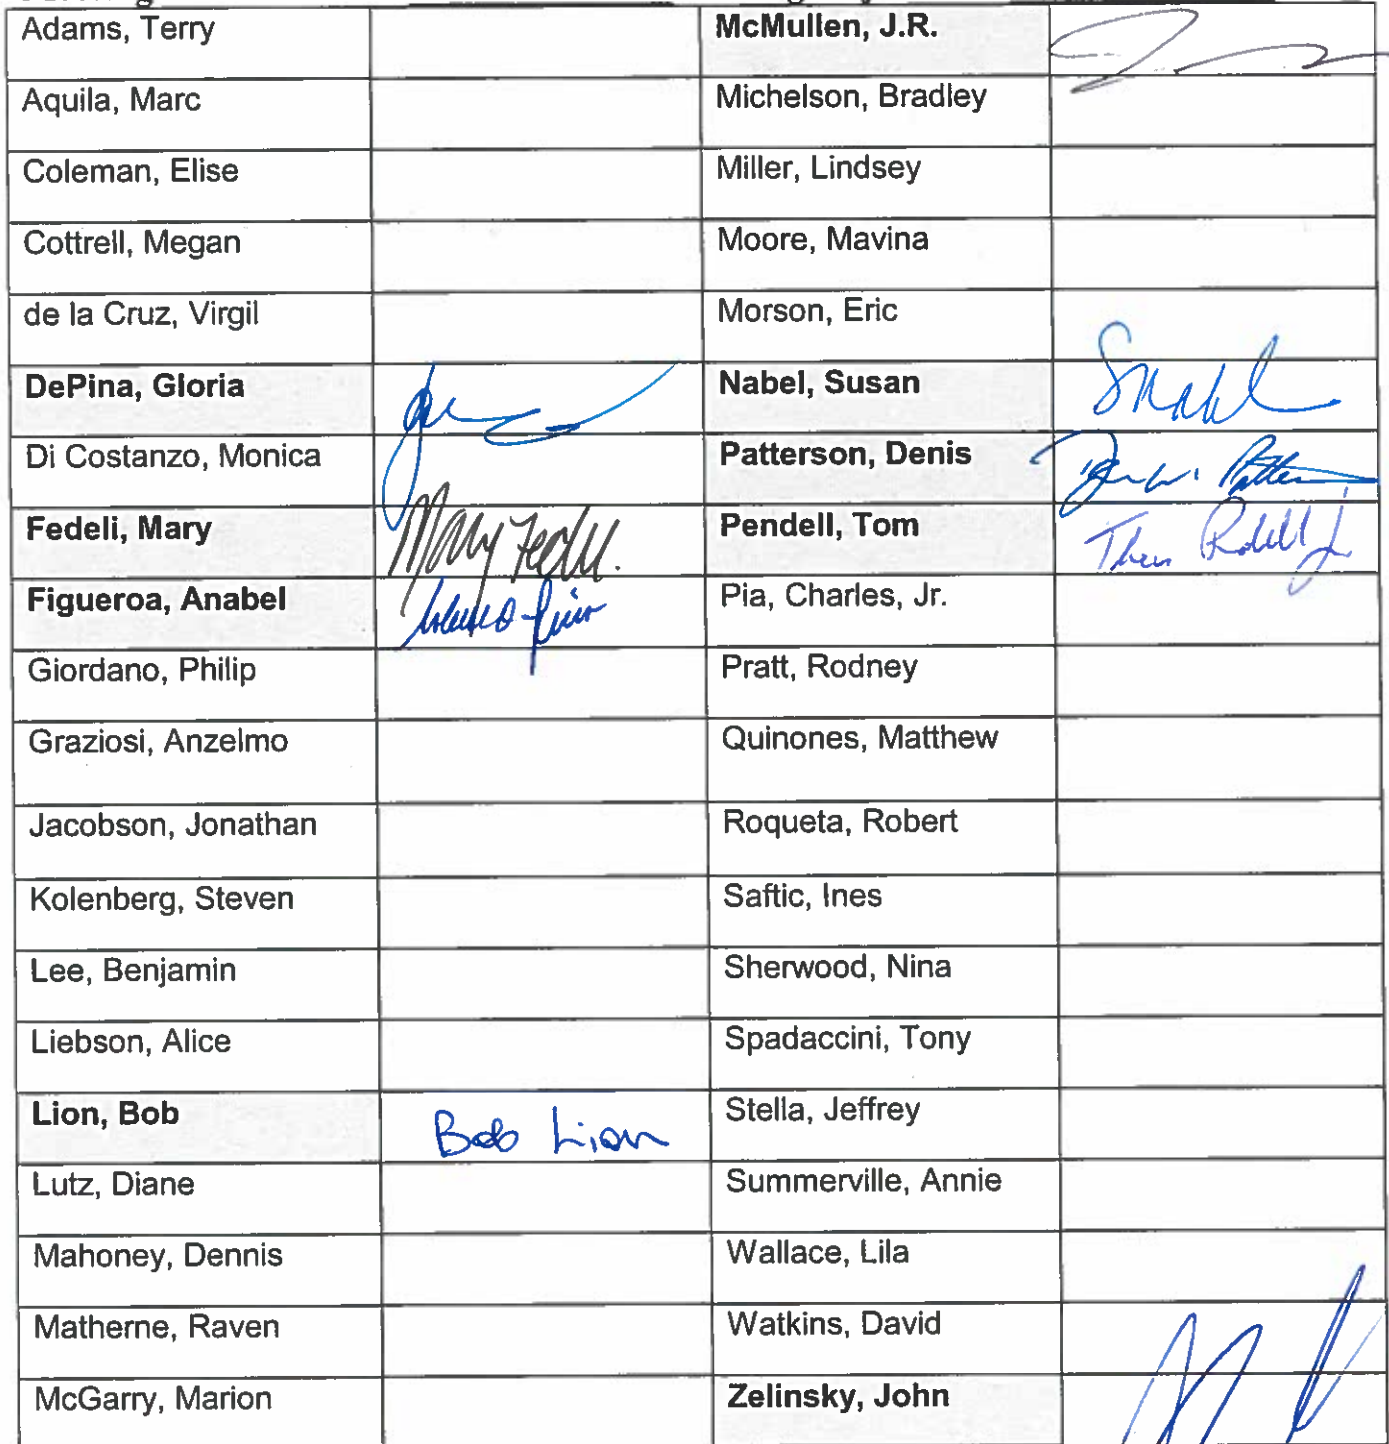 Adams, Terry McMullen, J.R.
Aquila, Marc Michelson, Bradley
Coleman, Elise Miller, Lindsey
Cottrell, Megan Moore, Mavina
de la Cruz, Virgil Morson, Eric
DePina, Gloria Nabel, Susan SNabel
Di Costanzo, Monica Patterson, Denis
Fedeli, Mary Mary Fedeli Pendell, Tom
Figueroa, Anabel Pia, Charles, Jr.
Giordano, Philip Pratt, Rodney
Graziosi, Anzelmo Quinones, Matthew
Jacobson, Jonathan Roqueta, Robert
Kolenberg, Steven Saftic, Ines
Lee, Benjamin Sherwood, Nina
Liebson, Alice Spadaccini, Tony
Lion, Bob Bob Lion Stella, Jeffrey
Lutz, Diane Summerville, Annie
Mahoney, Dennis Wallace, Lila
Matherne, Raven Watkins, David
McGarry, Marion Zelinsky, John